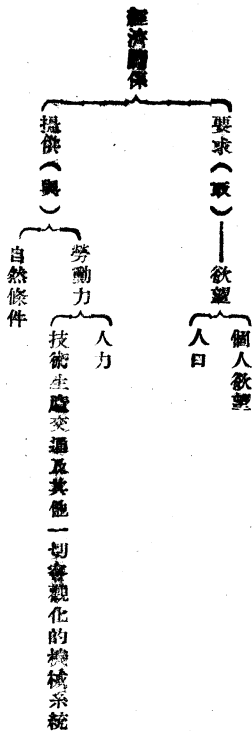 經濟關係
要求(取)——欲望
個人欲望
人口
提供(與)
勞動力
人力
技術生產交通及其他一切客觀化的機械系統
自然條件